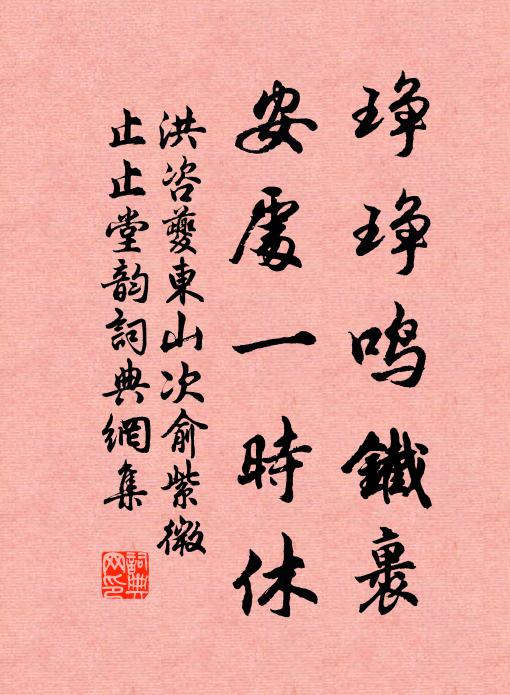 琤琤鳴鐵裹
安處一時休
洪咨夔東山次俞紫微
止止堂韵詞典網集
詞典网印